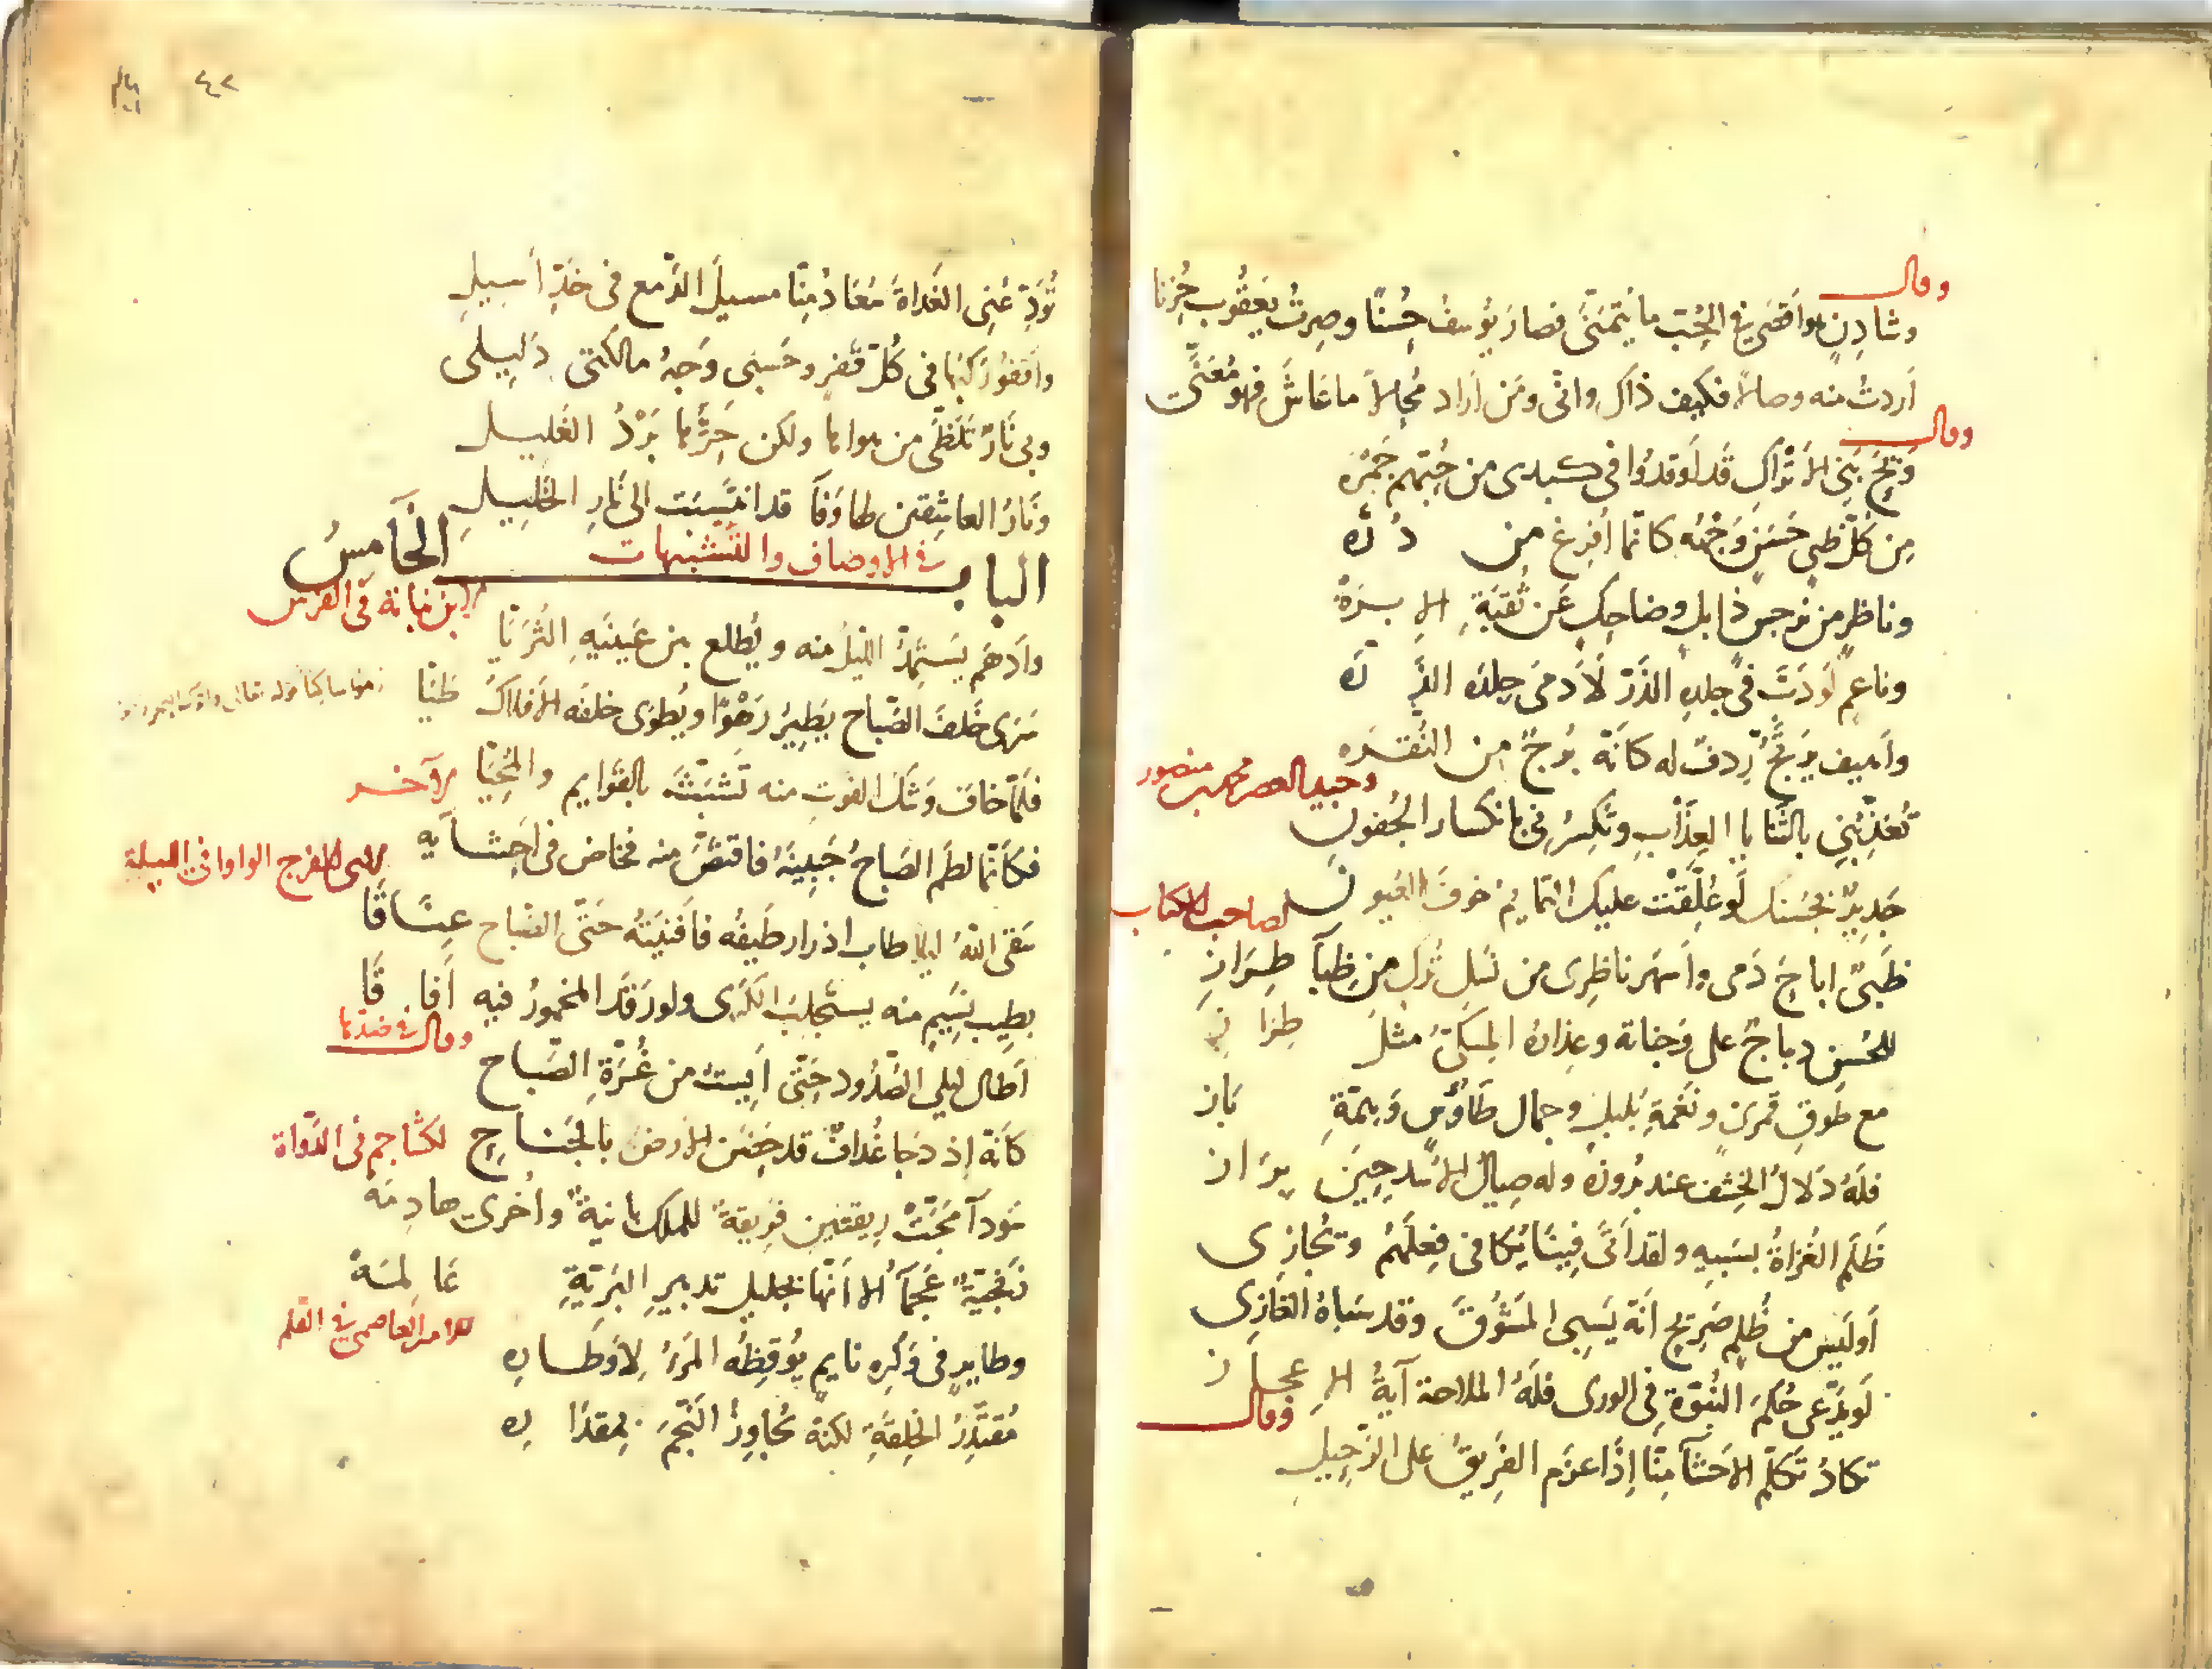 وقال
وشادن ما قضى في الحب ما يتمنى فصار يوسف حسنا وصرت يعقوب حزنا
أردت منه وصالا فكيف ذاك وانى ومن اراد محالا ما عاش فهو معنى
وقال
ويح بني الأتراك قد أوقدوا في كبدي من حبهم جمره
من كل ظبي حسن وجهه كانما أفرغ من دره
وناظر من نرجس ذابل وضاحك عن ثقبة الإبره
وناعم لو دب في جلده الذر لأدمى جلده الذره
وأهيف يرتج ردف له كأنه برج من النقره
وحيد العصر محمد بن منصور
تعذبني بالثنايا العذاب وتكسرني بانكسار الجفون
جدير بحسنك لو علقت عليك التمايم خوف العيون
لصاحب الكتاب
ظبي اباح دمي وأسهر ناظري من نسل ترك من ظبا طراز
للحسن ديباج على وجناته وعذاره المسكي مثل طراز
مع طوق قمري ونغمة بلبل وجمال طاؤس وهمة باز
فله دلال الخشف عند بروزه وله صيال الأسد حين براز
ظلم الغزاة بسبيه ولقد أتى فينا يكافي فعلهم وتجازي
أوليس من ظلم صريح أنه يسبي المشوق وقد سباه الغازي
لو يدعي حكم النبوة في الورى فله الملاحة آية الإعجاز
وقال
تكاد تكلم الأحشا منا إذا عزم الفريق على الرحيل
تودعني الغداة معاذ منا مسيل الدمع في خد أسيل
واقفو ركبها في كل قفر وحسبي وجه مالكتي دليلي
وبي نار تلظى من هواها ولكن حرها برد الغليل
ونار العاشقين طا وفا قد انتسبت الى نار الخليل
الباب الخامس
في الاوصاف والتشبيهات
لابن نباتة في الفرس
وأدهم يستمد الليل منه ويطلع بين عينيه الثريا
سرى خلف الصباح يطير زهوا ويطوى خلفه الأفلاك طيا
فلما خاف وشك الفوت منه تشبث بالقوايم والمحيا
لآخر
فكأنما لطم الصباح جبينه فاقتص منه فخاض في احشايه
لابي الفرج الواوا في الليلة
سقى الله ليلا طاب اذ زار طيفه فأفنيته حتى الصباح عناقا
بطيب نسيم منه يستجلب الكرى ولو رقد المخمور فيه أفاقا
وقال في ضدها
أطال ليلي الصدود حتى أيست من غرة الصباح
كأنه إذ دجا غداف قد حضن الأرض بالجناح
لكشاجم في الدواة
سودآ مجت ريقتين فريقة للملك بانية وأخرى هادمه
زنجية عجمآ الا انها بجليل تدبير البرية عالمه
للامر العاصمي في القلم
وطاير في وكره نايم يوقظه المرء لأوطاره
مقتدر الخلقة لكنه يجاوز النجم بمقداره